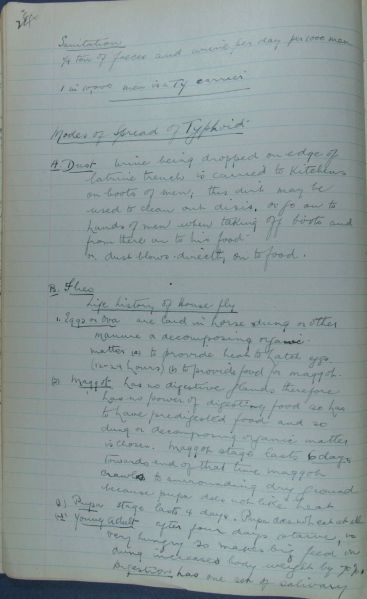 Sanitation
¼ ton of faeces and urine per day per 1000 men
1 in 10,000 men is a Ty carrier
Modes of Spread of Typhoid
A. Dust urine being dropped on edge of
latrine trench is carried to Kitchens
on boots of men, this dirt may be
used to clean out or go on to
hands of men when taking off boots and
from there on to his food
or dust blows directly on to food.
B. Flies
Life history of House fly
1. Eggs or Ova are laid in horse dung or other
manure a decomposing organic
matter (a) to provide heat to hatch eggs
(12-24 hours) (b) to provide food for maggots.
(2) Maggot has no digestive glands therefore
has no power of digesting food so has
to have predigested food and so
dung or decomposing organic matter
is chosen. Maggot stage lasts 6 days
towards end of that time maggot
crawls to surrounding dry ground
because pupa does not like heat
3) Pupa stage lasts 4 days. Pupa does not eat at all
(4) Young adult after four days is
very hungry so makes big feed in
dung increases body weight by 70%.
Digestion has one set of salivary